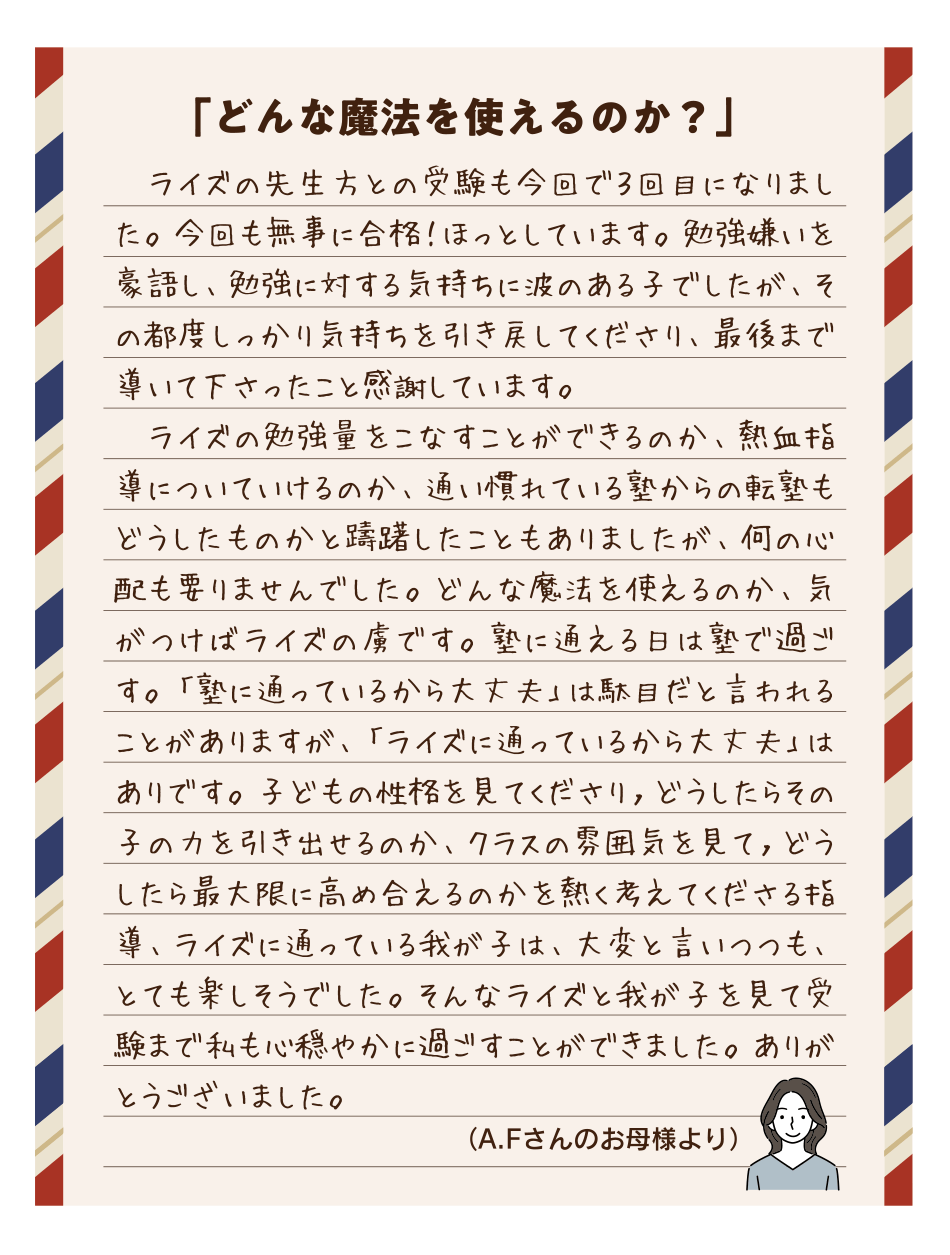 「どんな魔法を使えるのか？」
ライズの先生方との受験も今回で3回目になりまし
た。今回も無事に合格！ほっとしています。勉強嫌いを
豪語し、勉強に対する気持ちに波のある子でしたが、そ
の都度しっかり気持ちを引き戻してくださり、最後まで
導いて下さったこと感謝しています。
ライズの勉強量をこなすことができるのか、熱血指
導についていけるのか、通い慣れている塾からの転塾も
どうしたものかと躊躇したこともありましたが、何の心
配も要りませんでした。どんな魔法を使えるのか、気
がつけばライズの虜です。塾に通える日は塾で過ご
す。「塾に通っているから大丈夫」は駄目だと言われる
ことがありますが、「ライズに通っているから大丈夫」は
ありです。子どもの性格を見てくださり，どうしたらその
子の力を引き出せるのか、クラスの雰囲気を見て，どう
したら最大限に高め合えるのかを熱く考えてくださる指
導、ライズに通っている我が子は、大変と言いつつも、
とても楽しそうでした。そんなライズと我が子を見て受
験まで私も心穏やかに過ごすことができました。ありが
とうございました。
（A.Fさんのお母様より）